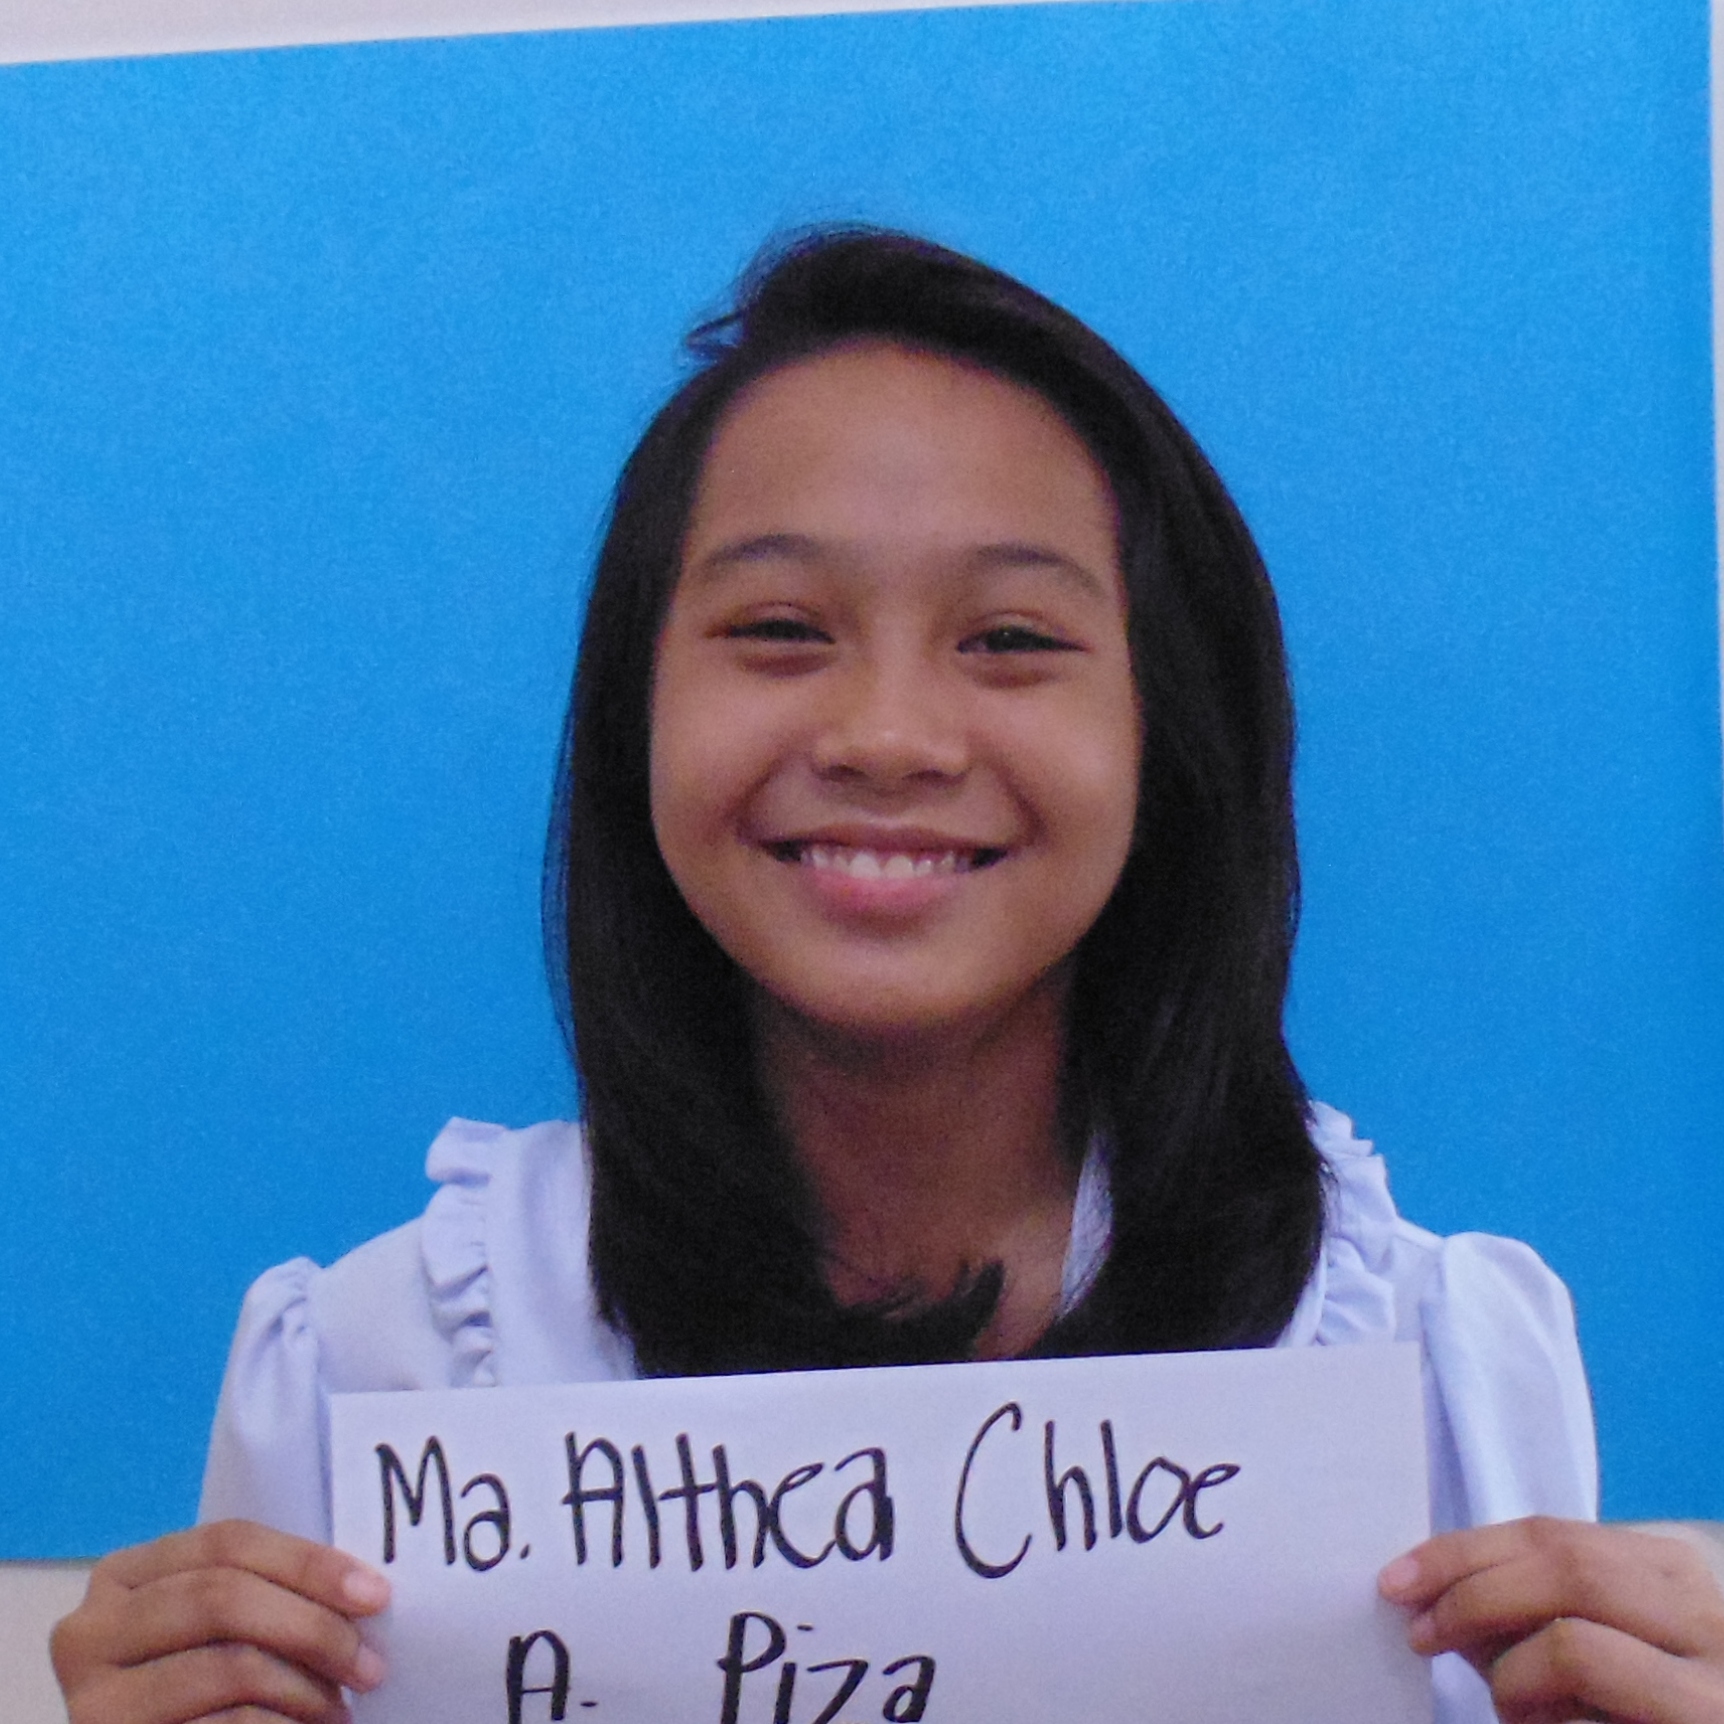 Ma. Althea Chloe
A. Piza